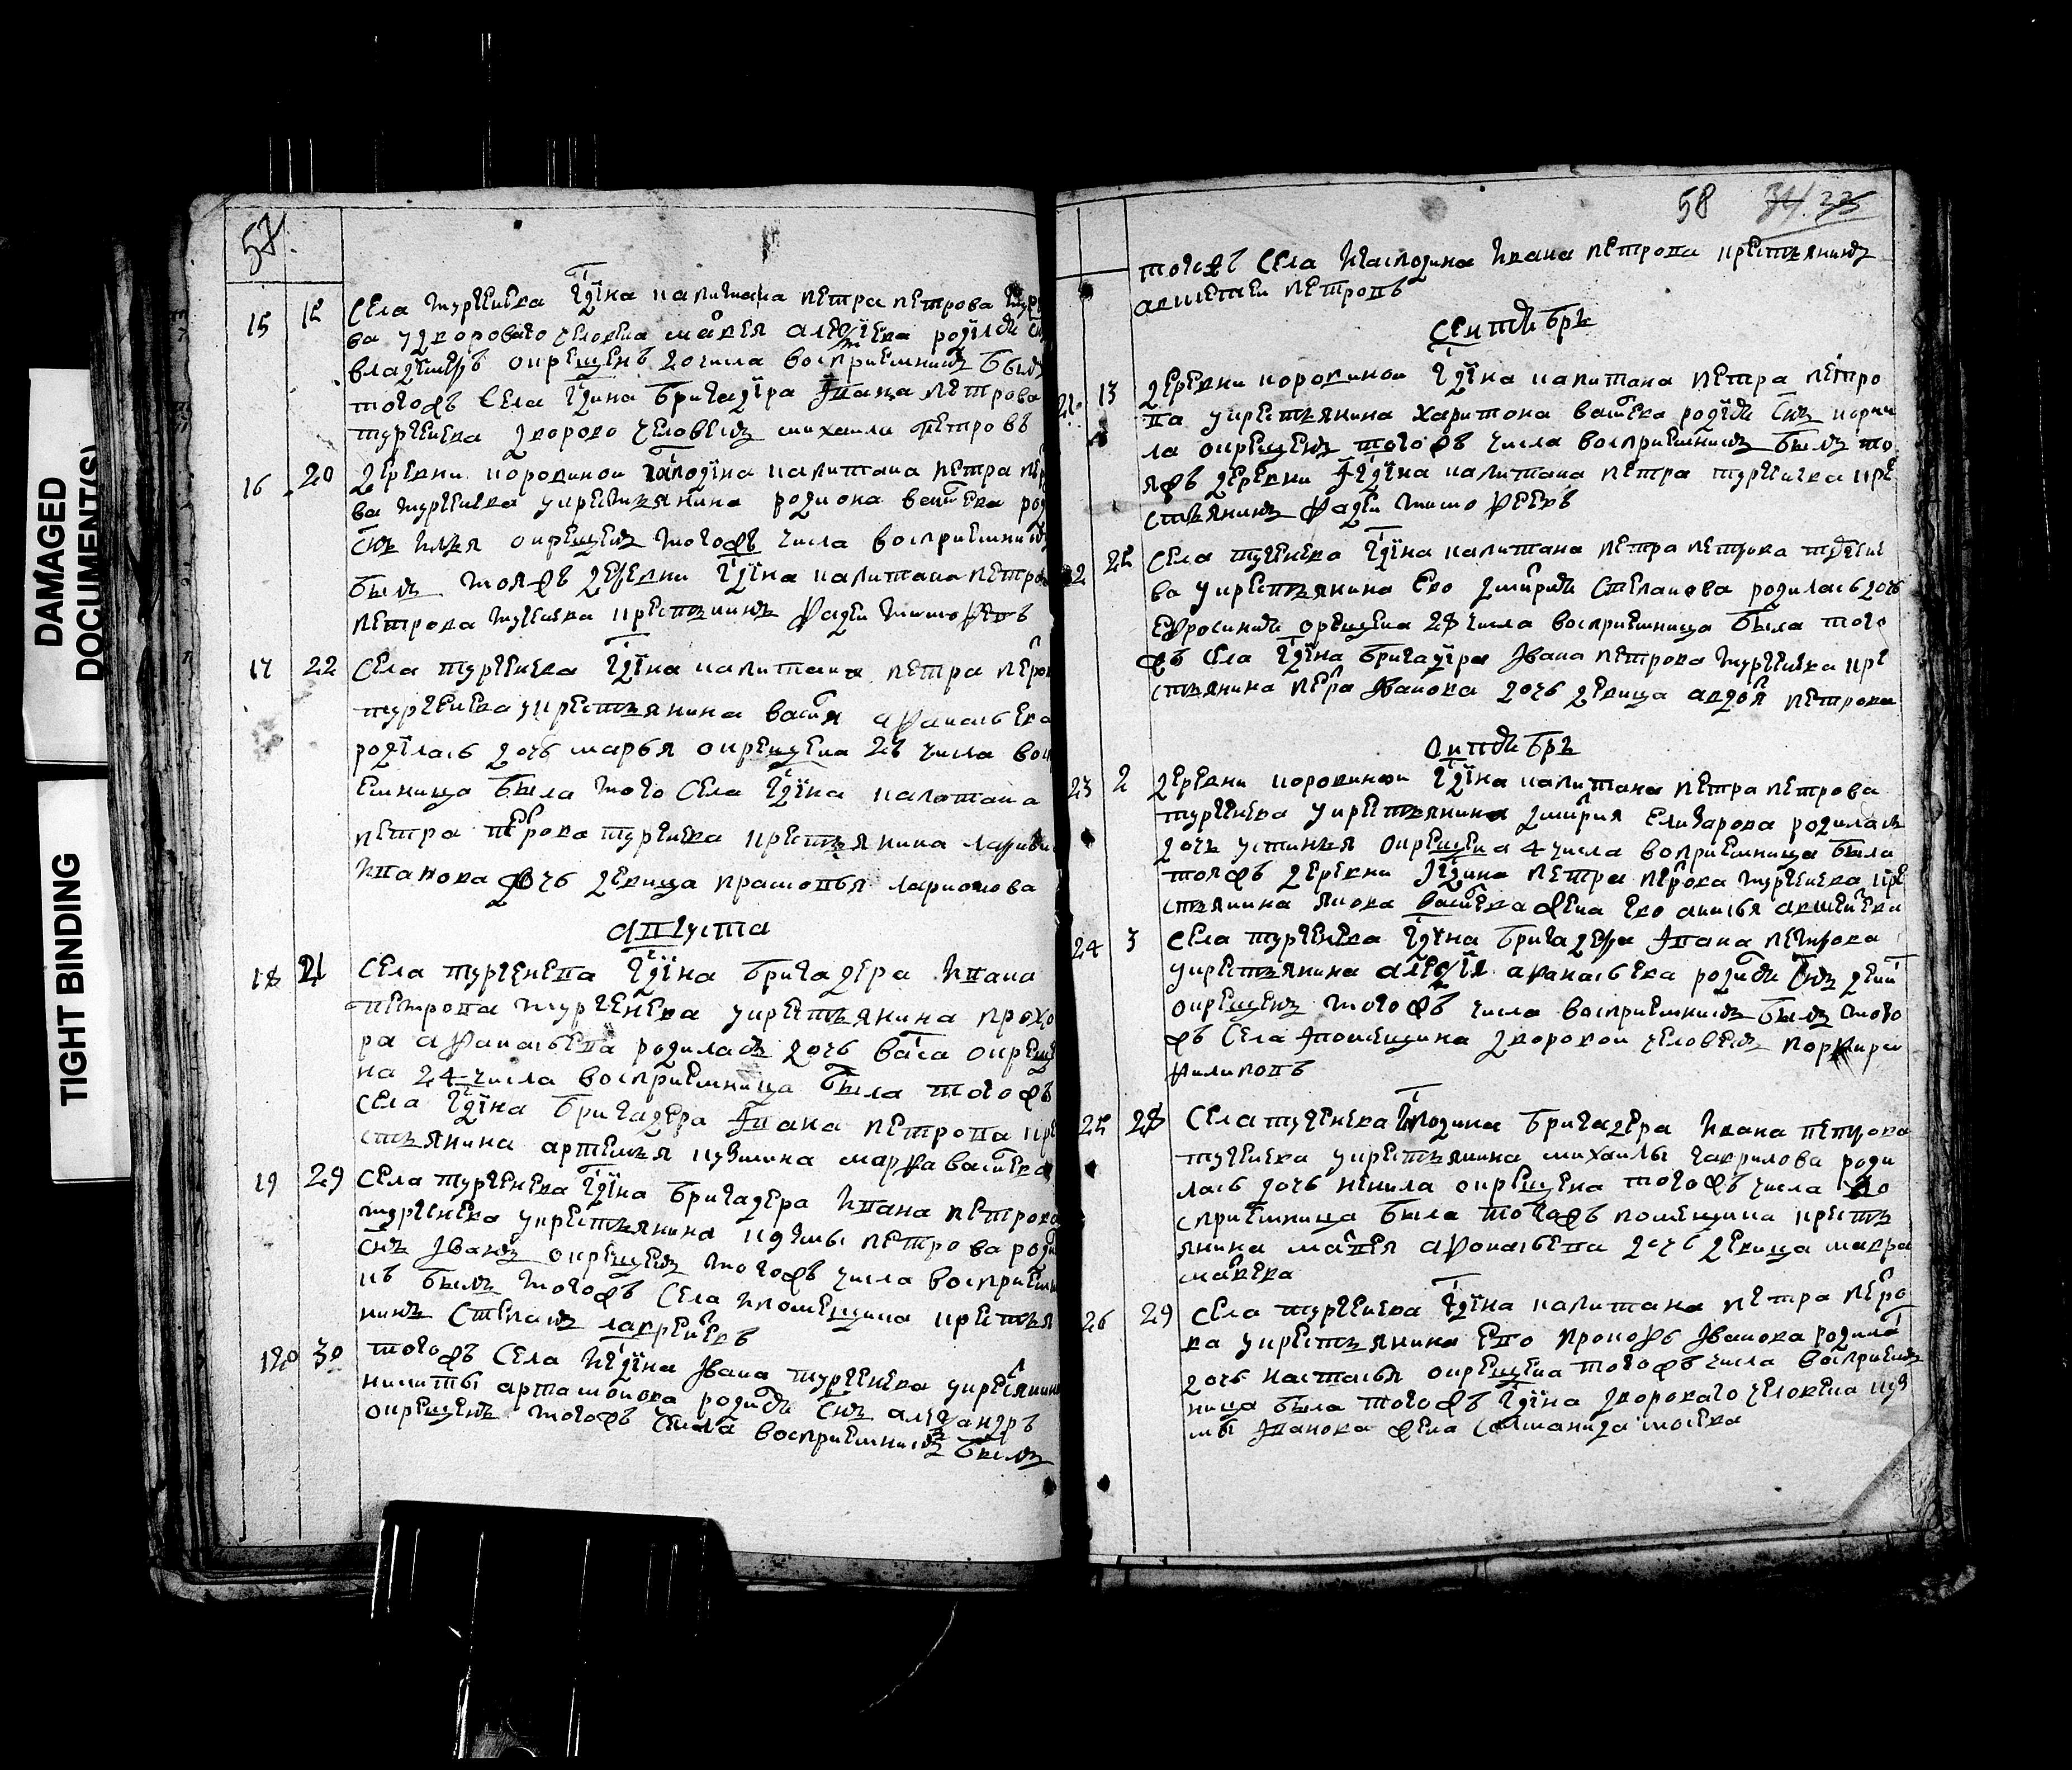 DAMAGED
DOCUMENT(S)
TIGHT BINDING
57.
15 15 села тургенева гдїна капитана петра петрова
ва у дворового человека родился
владимеръ окрещенъ 20 числа восприемникъ былъ
тогожъ села гдина бригадїра Ивана петрова
тургенева дворово человекъ михаила петровъ
16 20 деревни коровиной гаподїна капитана петра
ва тургенева у крестьянина родиона васильева
снъ илья окрещенъ тогожъ числа восприемникъ
былъ тояжъ деревни гдїна капитана петра
петрова тургенева крестьянинъ фадеи тимофеевъ
17 22 села тургенева гдїна капитана петра петрова
тургенева у крестьянина василья афанасьева
родїлась дочь марья окрещена 23 числа
емница была того села гдїна капитана
петра петрова тургенева крестьянина
иванова дочь девица прасковья ларионова
августа
18 21 села тургенева гдїна бригадера ивана
петрова тургенева у крестьянина прохо
ра афанасьева родилась дочь васа окреще
на 24 числа восприемница была тогожъ
села гдїна бригадера Ивана петрова кре
стьянина артемья кузмина марфа васильева
19 29 села тургенева гдїна бригадера ивана петрова
тургенева у крестьянина кузмы петрова
снъ Иванъ окрещенъ тогожъ числа восприемни
къ былъ тогожъ села помещика крестья
нинъ степанъ лаврентьевъ
120 30 тогожъ села гдїна Ивана тургенева у крестьянина
никиты артамонова родился снъ александръ
окрещенъ тогожъ числа восприемникъ былъ
58 34 33
тогожъ села гасподина ивана петрова крестьянинъ
авксентеи петровъ
сентябрь
21 13 деревни коровиной гдїна капитана петра петро
ва у крестьянина харитона васильева родился снъ корни
ла окрещенъ тогожъ числа восприемникъ былъ то
яжъ деревни гдїна капитана петра тургенева кре
стьянинъ фадеи тимофеевъ
22 25 села тургенева гдїна капитана петра петрова тургене
ва у крестьянина ево дмитрия степанова родилась дочь
ефросиния окрещена 28 числа восприемница была того
жъ села гдїна бригадїра Ивана петрова тургенева кре
стьянина петра Иванова дочь девица авдотья петрова
октябрь
23 2 деревни коровиной гдїна капитана петра петрова
тургенева у крестьянина дмитрия елизарова родилась
дочь устинья окрещена 4 числа восприемница была
тоежъ деревни гдина петра петрова тургенева кре
стьянина якова васильева жена ево анисья
24 3 села тургенева гдїна бригадера Ивана петрова
у крестьянина афанасьева родился снъ
окрещенъ тогожъ числа восприемникъ былъ того
жъ села помещика дворовои человекъ порфири
филиповъ
25 28 села тургенева гасподина бригадера ивана петрова
тургенева у крестьянина михаилы гаврилова роди
лась дочь ненила окрещена тогожъ числа во
сприемница была тогожъ помещика кресть
янина матвея афонасьева дочь девица мавра
матвеева
26 29 села тургенева гдїна капитана петра петро
ва у крестьянина ево прокофья Иванова родилась
дочь настасья окрещена тогожъ числа восприем
ница была тогожъ гдїна дворового человека куз
мы Иванова жена мосева